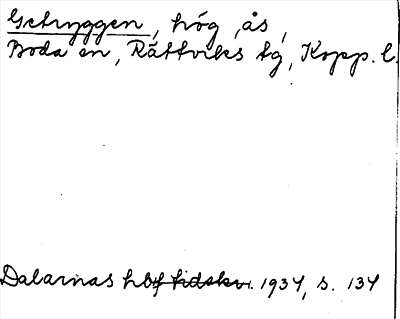 Getryggen, hög ås,
Boda sn, Rättviks tg, Kopp. l.
Dalarnas hbf tidskr. 1937, s. 137